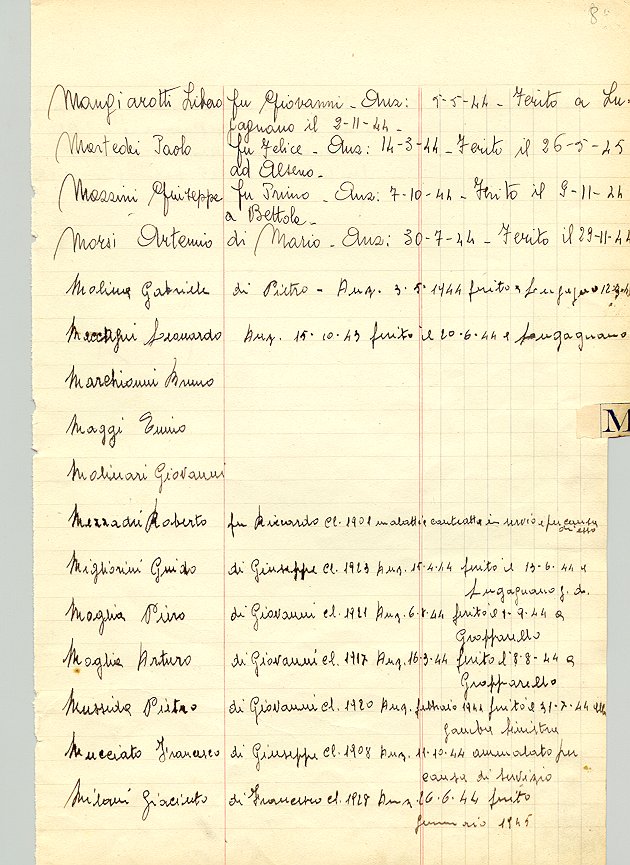 8
Mangiarotti Libero fu Giovanni - Anz: 5-5-44 - Ferito a Lu=
gagnano il 2-11-44 -
Martedei Paolo fu Felice - Anz: 14-3-44 - Ferito il 26-5-45
ad Alseno -
Mazzini Giuseppe fu Primo - Anz: 7-10-44 - Ferito il 9-11-44
a Bettola -
Morsi Artemio di Mario - Anz: 30-7-44 - Ferito il 29-11-44
Molina Gabriele di Pietro - Anz. 3-5-1944 ferito a Lugagnano
Leonardo Anz. 15-10-43 ferito il 20-6-44 a Lugagnano
Marchionni Bruno
Maggi Ennio
Molinari Giovanni
M
Mezzadri Roberto fu Riccardo cl. 1901 malattia contratta in servizio e per causa
di esso
Migliorini Guido di Giuseppe cl. 1923 Anz. 15-4-44 ferito il 13-6-44 a
Lugagnano
Maglia Piero di Giovanni cl. 1921 Anz. ferito il 9-44 a
Gropparello
Maglia Arturo di Giovanni cl. 1917 Anz. 16-3-44 ferito l'8-8-44 a
Gropparello
Mussida Pietro di Giovanni cl. 1920 Anz. febbraio 1944 ferito il 31-7-44 alla
gamba sinistra
Mucciato Francesco di Giuseppe cl. 1908 Anz. 11-10-44 ammalato per
causa di servizio
Milani Giacinto di Francesco cl. 1928 Anz. 26-6-44 ferito
Gennaio 1945